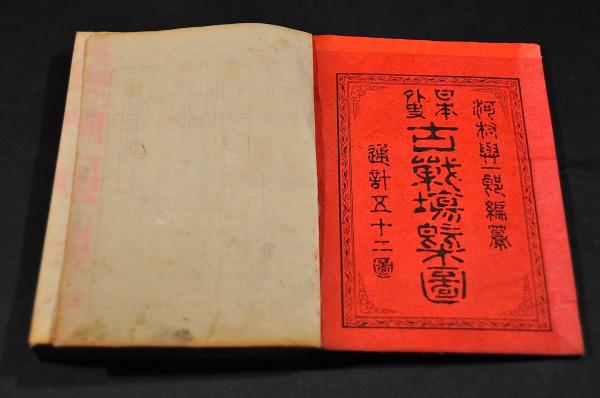 河村與一郎編纂
日本外史古戰場槩圖
通計五十二圖